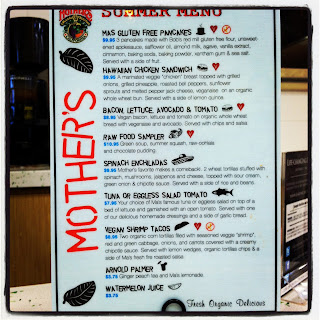 MOTHER'S
SUMMER MENU
MAS GLUTEN FREE PANCAKES
$9.95 3 pancakes made with Bob's red mill gluten free flour, unsweet-
ened applesauce, safflower oil, almond milk, agave, vanilla extract,
cinnamon, baking soda, baking powder, xanthan gum & sea salt.
Served with a side of fruit.
HAWAIIAN CHICKEN SANDWICH
$9.95 A marinated veggie "chicken" breast topped with grilled
onions, grilled pineapple, roasted bell peppers, sunflower
sprouts and melted pepper jack cheese, veganaise on an organic
whole wheat bun. Served with a side of lemon quinoa.
BACON, LETTUCE, AVOCADO & TOMATO
$8.95 Vegan bacon, lettuce and tomato on organic whole wheat
bread with veganaise and avocado. Served with chips and salsa.
RAW FOOD SAMPLER
$10.95 Green soup, summer squash, raw-violis
and chocolate pudding.
SPINACH ENCHILADAS
$9.95 Mother's favorite makes a comeback. 2 wheat tortillas stuffed with
spinach, mushrooms, jalapenos and cheese, topped with sour cream,
green onion & chipotle sauce. Served with a side of rice and beans.
TUNA OR EGGLESS SALAD TOMATO
$7.95 Your choice of Ma's famous tuna or eggless salad on top of a
bed of lettuce and garnished with an open tomato. Served with one
of our delicious homemade dressings and a side of garlic bread.
VEGAN SHRIMP TACOS
$8.95 Two organic corn tortillas filled with seasoned veggie "shrimp",
red and green cabbage, onions, and carrots covered with a creamy
chipotle sauce. Served with lemon wedges, organic tortilla chips & a
side of Ma's fresh fire roasted salsa.
ARNOLD PALMER
$3.75 Ginger peach tea and Ma's lemonade.
WATERMELON JUICE
$3.75
Fresh Organic Delicious
MOTHER'S